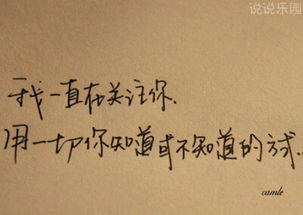 说说乐园
我一直在关注你.
用一切你知道或不知道的方式.
camle